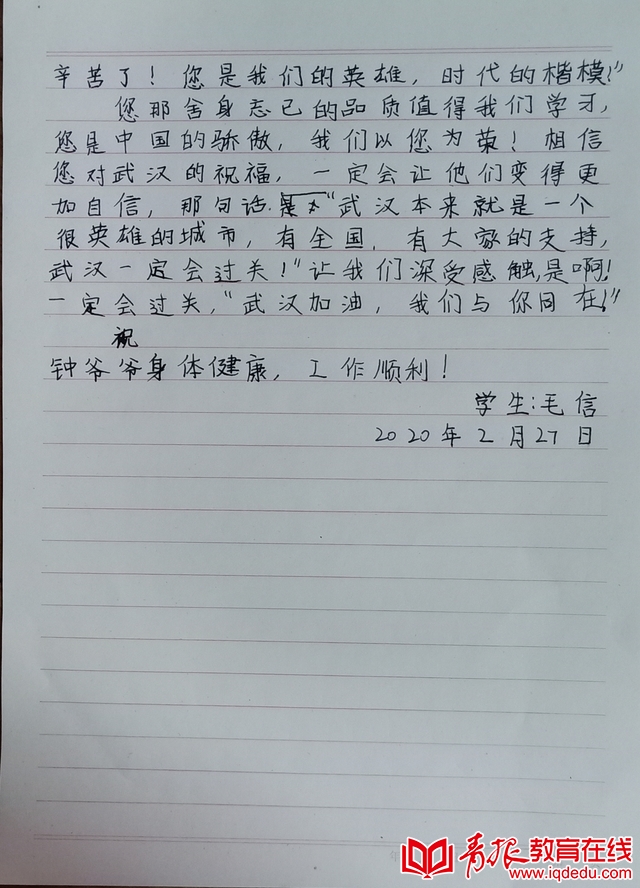 辛苦了！您是我们的英雄，时代的楷模！”
您那舍身忘己的品质值得我们学习，
您是中国的骄傲，我们以您为荣！相信
您对武汉的祝福，一定会让他们变得更
加自信，那句话“武汉本来就是一个
很英雄的城市，有全国，有大家的支持，
武汉一定会过关！”让我们深受感触，是啊！
一定会过关，“武汉加油，我们与你同在！”
祝
钟爷爷身体健康，工作顺利！
学生：毛信
2020年2月27日
青报教育在线
www.iqdedu.com